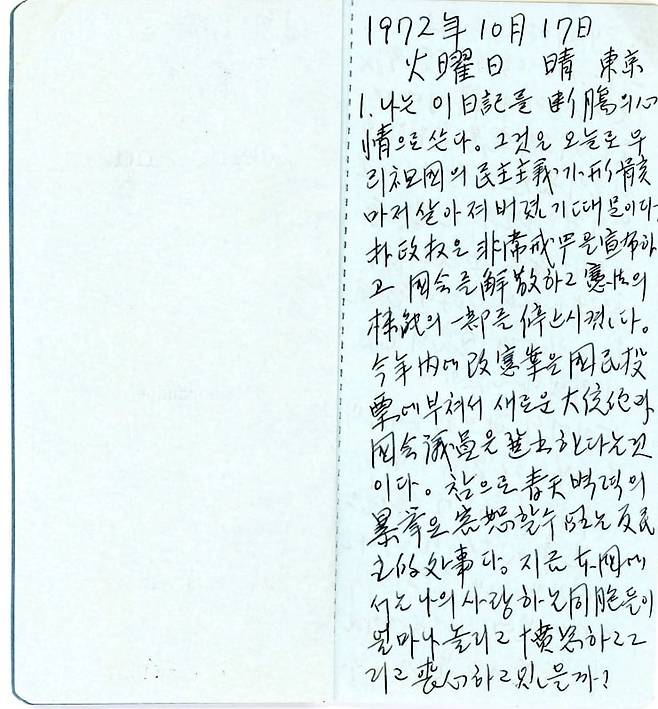 1972年 10月 17日
火曜日 晴 東京
1. 나는 이 日記를 断膓의 心
情으로 쓴다. 그것은 오늘로 우
리 祖國의 民主主義가 形骸
마저 살아져 버렸기 때문이다.
朴政权은 非常戒厳을 宣布하
고 国会를 解散하고 憲法의
機能의 一部를 停止시켰다.
今年內에 改憲案을 国民投
票에 부쳐서 새로운 大統領과
国会議員을 選出한다는 것
이다. 참으로 青天벽력의
暴挙요 容恕할 수 없는 反民
主的 处事다. 지금 本国에
서는 나의 사랑하는 同胞들이
얼마나 놀리고 憤怒하고 그
리고 喪心하고 있을까?